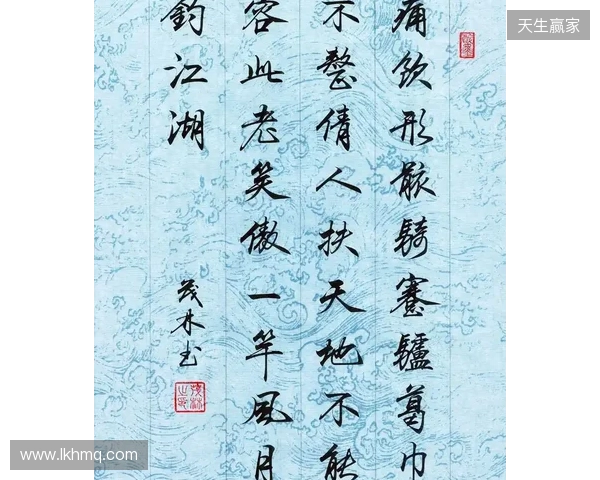 天生赢家
痛饮形骸騎蹇驢葛巾
不整倩人扶天地不能
容此老笑傲一竿風月
釣江湖
茂林书
www.lkhmq.com